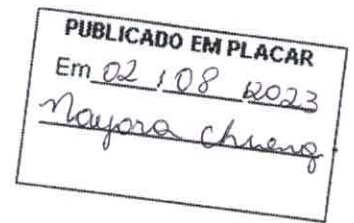 PUBLICADO EM PLACAR
Em 02 / 08 / 2023
Nayora